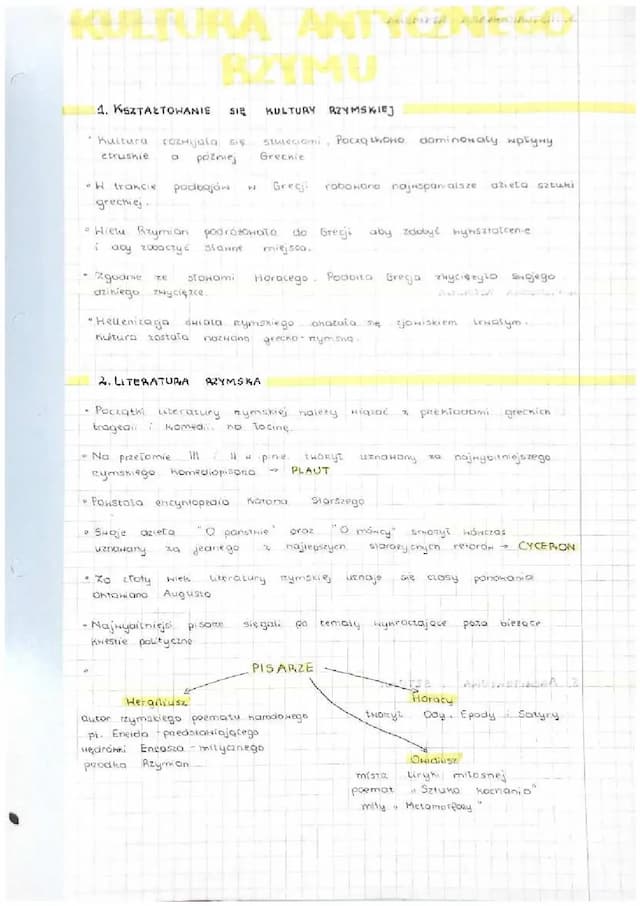 KULTURA ANTYCZNEGO
RZYMU
1. KSZTAŁTOWANIE SIĘ KULTURY RZYMSKIEJ
• Kultura rozwijała się stuleciami. Początkowo dominowały wpływy
etruskie a później Greckie
• W trakcie podbojów w Grecji rabowano najwspanialsze dzieła sztuki
greckiej.
• Wielu Rzymian podróżowało do Grecji aby zdobyć wykształcenie
i aby zobaczyć sławne miejsca.
• Zgodnie ze słowami Horacego. Podbita Grecja zwyciężyła swojego
dzikiego zwycięzce.
• Hellenizacja świata rzymskiego okazała się zjawiskiem trwałym.
kultura została nazwana grecko-rzymską.
2. LITERATURA RZYMSKA
• Początki literatury rzymskiej należy wiązać z przekładami greckich
tragedii i komedii na łacinę.
• Na przełomie III i II w p.n.e. tworzył uznawany za najwybitniejszego
rzymskiego komediopisarza → PLAUT
• Powstała encyklopedia Katona Starszego
• Swoje dzieła "O państwie" oraz "O mówcy" stworzył wówczas
uznawany za jednego z najlepszych starożytnych retorów → CYCERON
• Za złoty wiek literatury rzymskiej uznaje się czasy panowania
Oktawiana Augusta
• Najwybitniejsi pisarze sięgali po tematy wykraczające poza bieżące
kwestie polityczne
PISARZE
Wergiliusz
autor rzymskiego poematu narodowego
pt. Eneida - przedstawiającego
wędrówki Eneasza - mitycznego
przodka Rzymian
Horacy
tworzył Ody, Epody i Satyry
Owidiusz
mistrz liryki miłosnej
poemat "Sztuka kochania"
mity "Metamorfozy"